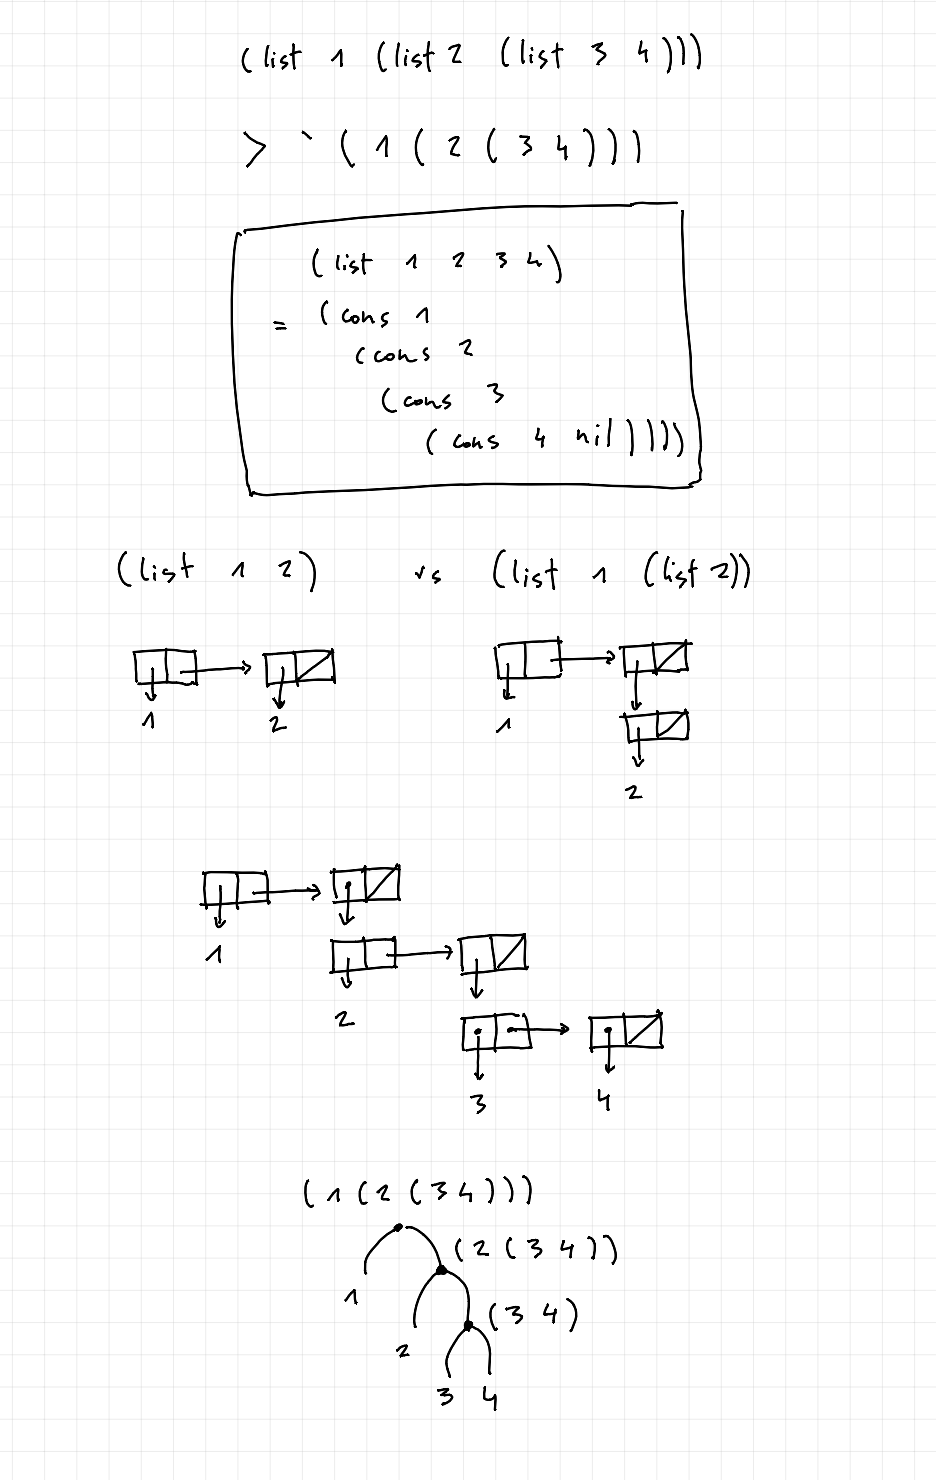 (list 1 (list 2 (list 3 4)))
> `(1 (2 (3 4)))
(list 1 2 3 4)
= (cons 1
(cons 2
(cons 3
(cons 4 nil))))
(list 1 2) vs (list 1 (list 2))
1 2 1
2
1
2
3 4
(1 (2 (3 4)))
(2 (3 4))
1
(3 4)
2
3 4